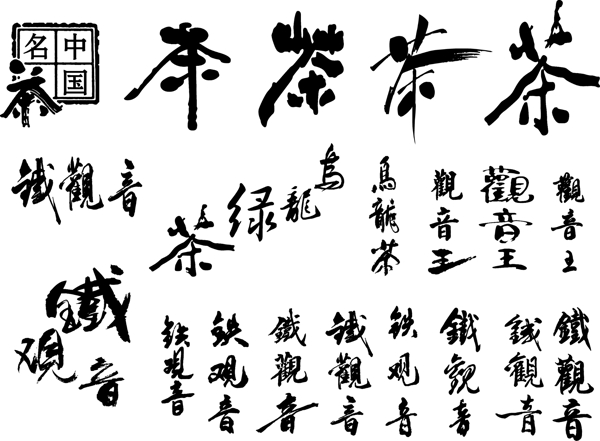 中国名茶
茶
茶
茶
茶
鐵觀音
茶
绿
烏龍
烏龍茶
觀音王
觀音王
觀音王
鐵观音
铁观音
铁观音
鐵觀音
鐵觀音
铁观音
鐵觀音
鐵觀音
鐵觀音